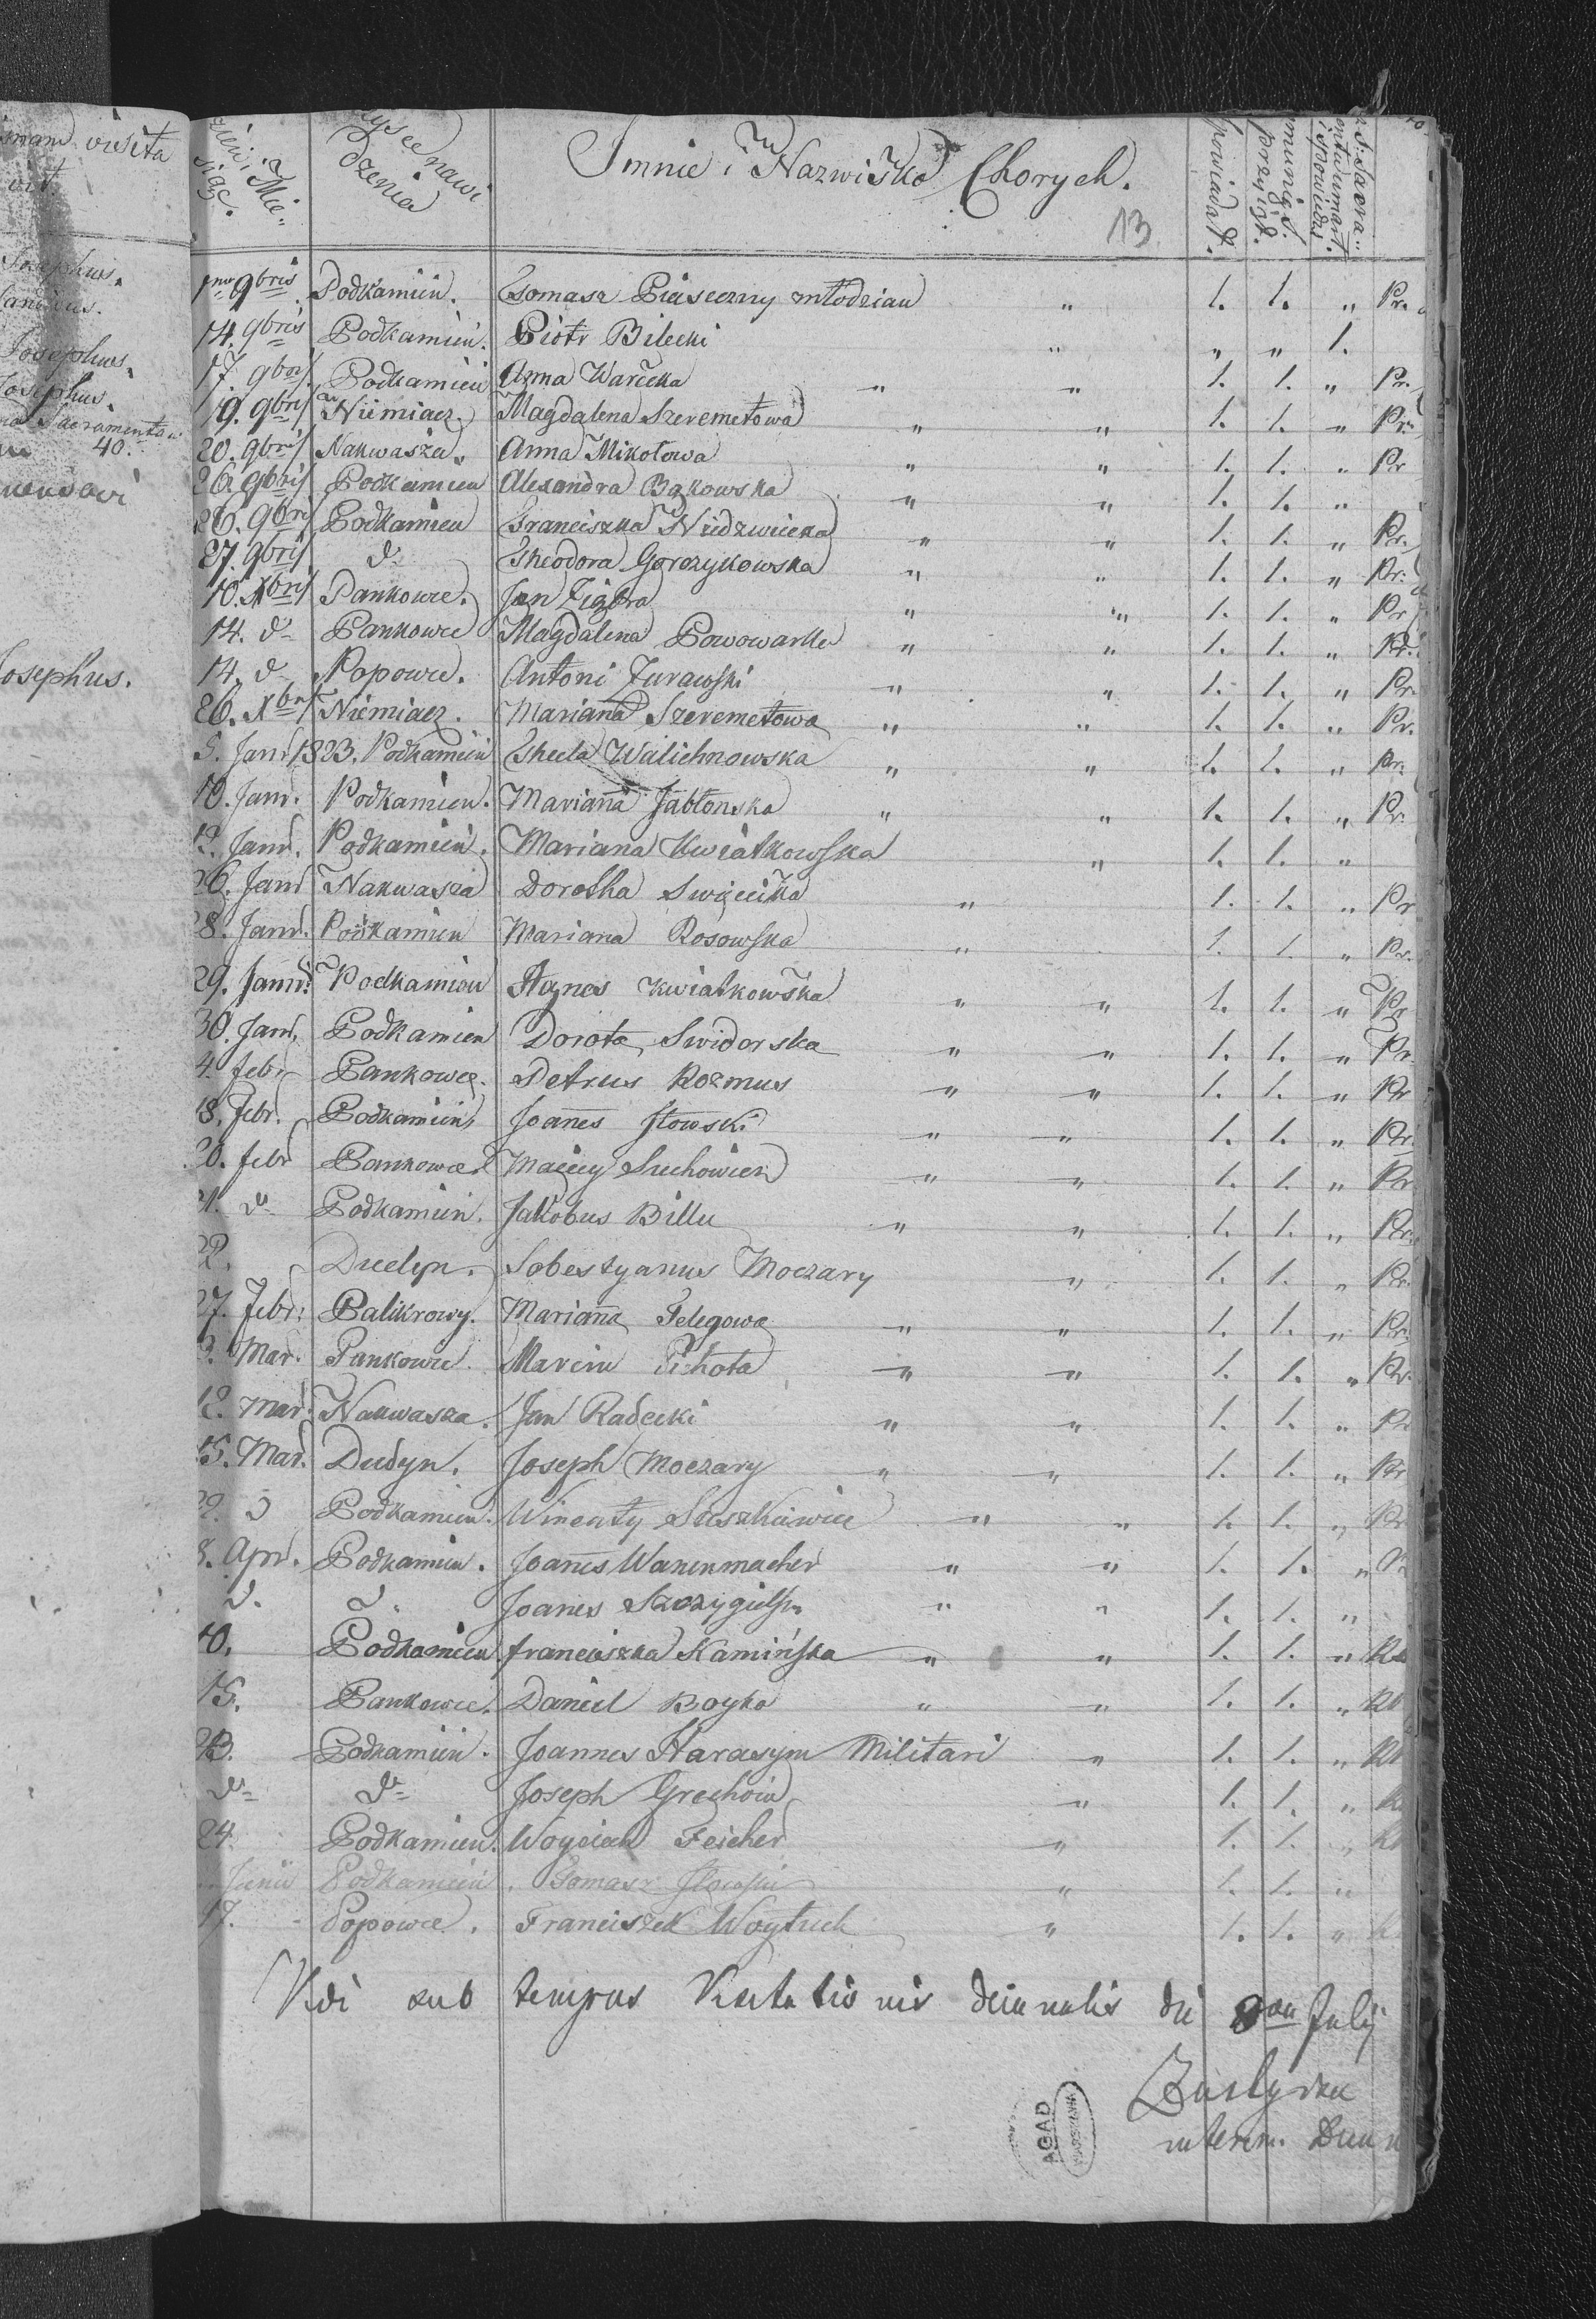 visita
Josephus.
Josephus.
Josephus.
Sacramentow
40.
Josephus.
dzień i Mie..
siąc.
nawi
dzenia
Imnie i Nazwisko Chorych.
13.
spowiadał.
przyięł.
1ma 9bris Podkamień. Tomasz Piaseczny młodzian " 1. 1. " Pr.
14. 9bris Podkamień. Piotr Bilecki " " " 1.
17. 9bris Podkamień Anna Warecka " " 1. 1. " Pr.
19. 9bris Niemiacz. Magdalena Szeremetowa " " 1. 1. " Pr.
20. 9bris Nakwasza. Anna Mikołowa " " 1. 1. " Pr
26. 9bris Podkamien Alexandra Bąkowska " " 1. 1. "
26. 9bris Podkamien Franciszka Niedzwiecka " " 1. 1. " Pr.
27. 9bris d- Theodora Gorczykowska " " 1. 1. " Pr.
10. Xbris Pankowce. Jan Ziąbra " " 1. 1. " Pr
14. d- Pankowce Magdalena " " 1. 1. " Pr.
14. d- Popowce. Antoni Zurawski " " 1. 1. " Pr.
26. Xbris Niemiacz. Mariana Szeremetowa " " 1. 1. " Pr.
5. Janr 1823. Podkamień Thecla Walichnowska " " 1. 1. " Pr.
10. Janr. Podkamien. Marianna Jabłonska " " 1. 1. " Pr.
12. Janr. Podkamień. Mariana Kwiatkowska " 1. 1. "
26. Janr Nakwasza Dorotha Swięcicka " 1. 1. " Pr
28. Janr. Podkamien Mariana Rosowska " 1. 1. " Pr.
29. Janr. Podkamien Agnes Kwiatkowska " " 1. 1. " Pr
30. Janr. Podkamien Dorota Swidorska " " 1. 1. " Pr.
4. febr Pankowce. Petrus Rozmus " " 1. 1. " Pr
18. Febr. Podkamień Joanes Iłowski " " 1. 1. " Pr.
20. febr Pankowce Maciey Suchowicz " " 1. 1. " Pr
21. d- Podkamień. Jakobus Bille " " 1. 1. " Pr.
22. Dudyn. Sobestyanus Moczary " 1. 1. " Pr.
27. Febr: Palikrowy. Marianna Telegowa " " 1. 1. " Pr.
3. Mar. Pankowce. Marcin Pichota " " 1. 1. " Pr.
12. Mar. Nakwasza. Jan Radecki " " 1. 1. " Pr
15. Mar. Dudyn. Joseph Moczary " " 1. 1. " Pr
22. d Podkamien. Wincenty Suszkiewicz " " 1. 1. " Pr
8. Apr. Podkamien. Joannes Wanenmacher " " 1. 1. " Pr
d. d Joanes Szczygielski " " 1. 1. "
10. Podkamien franciszka Kamińska " " 1. 1. "
15. Pankowce. Daniel Boyko " " 1. 1. "
23. Podkamień. Joannes Harasym Militari " 1. 1. "
d- d- Joseph Grechoin " 1. 1. "
24. Podkamien. Woyciech Feicher " 1. 1. "
Junii Podkamień. Tomasz Iłowski " 1. 1. "
17. Popowce. Franciszek Woytuch " 1. 1. "
Vidi sub tempus Visitationis decanalis die 8va Julij
interim.
AGAD
WARSZAWA